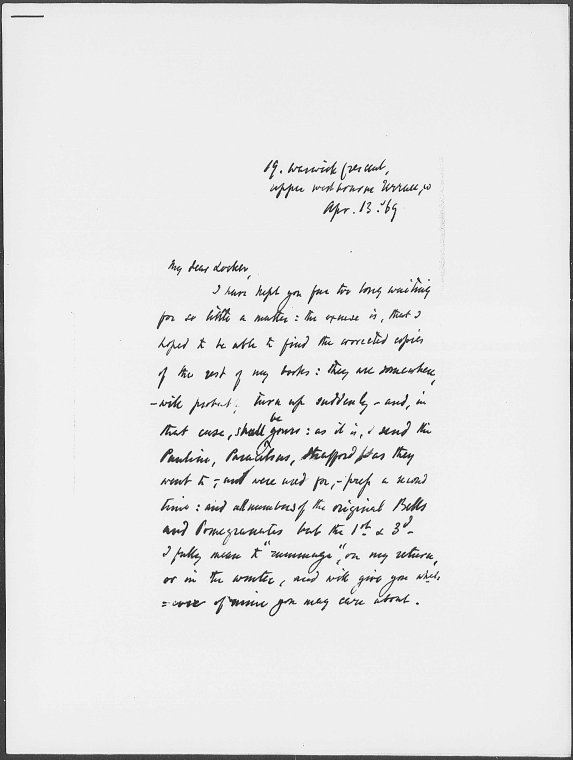 19. Warwick Crescent,
Upper Westbourne Terrace, W
Apr. 13. '69.
My dear Locker,
I have kept you far too long waiting
for so little a matter: the excuse is, that I
hoped to be able to find the corrected copies
of the rest of my books: they are somewhere,
- will turn up suddenly - and, in
that case, shall be yours: as it is, I send the
Pauline, Paracelsus, Strafford as they
went to, - and were used for, - a second
time: and all numbers of the original Bells
and Pomegranates but the 1st & 3d.
I fully mean to "rummage", on my return,
or in the winter, and will give you what
=ever of mine you may care about.